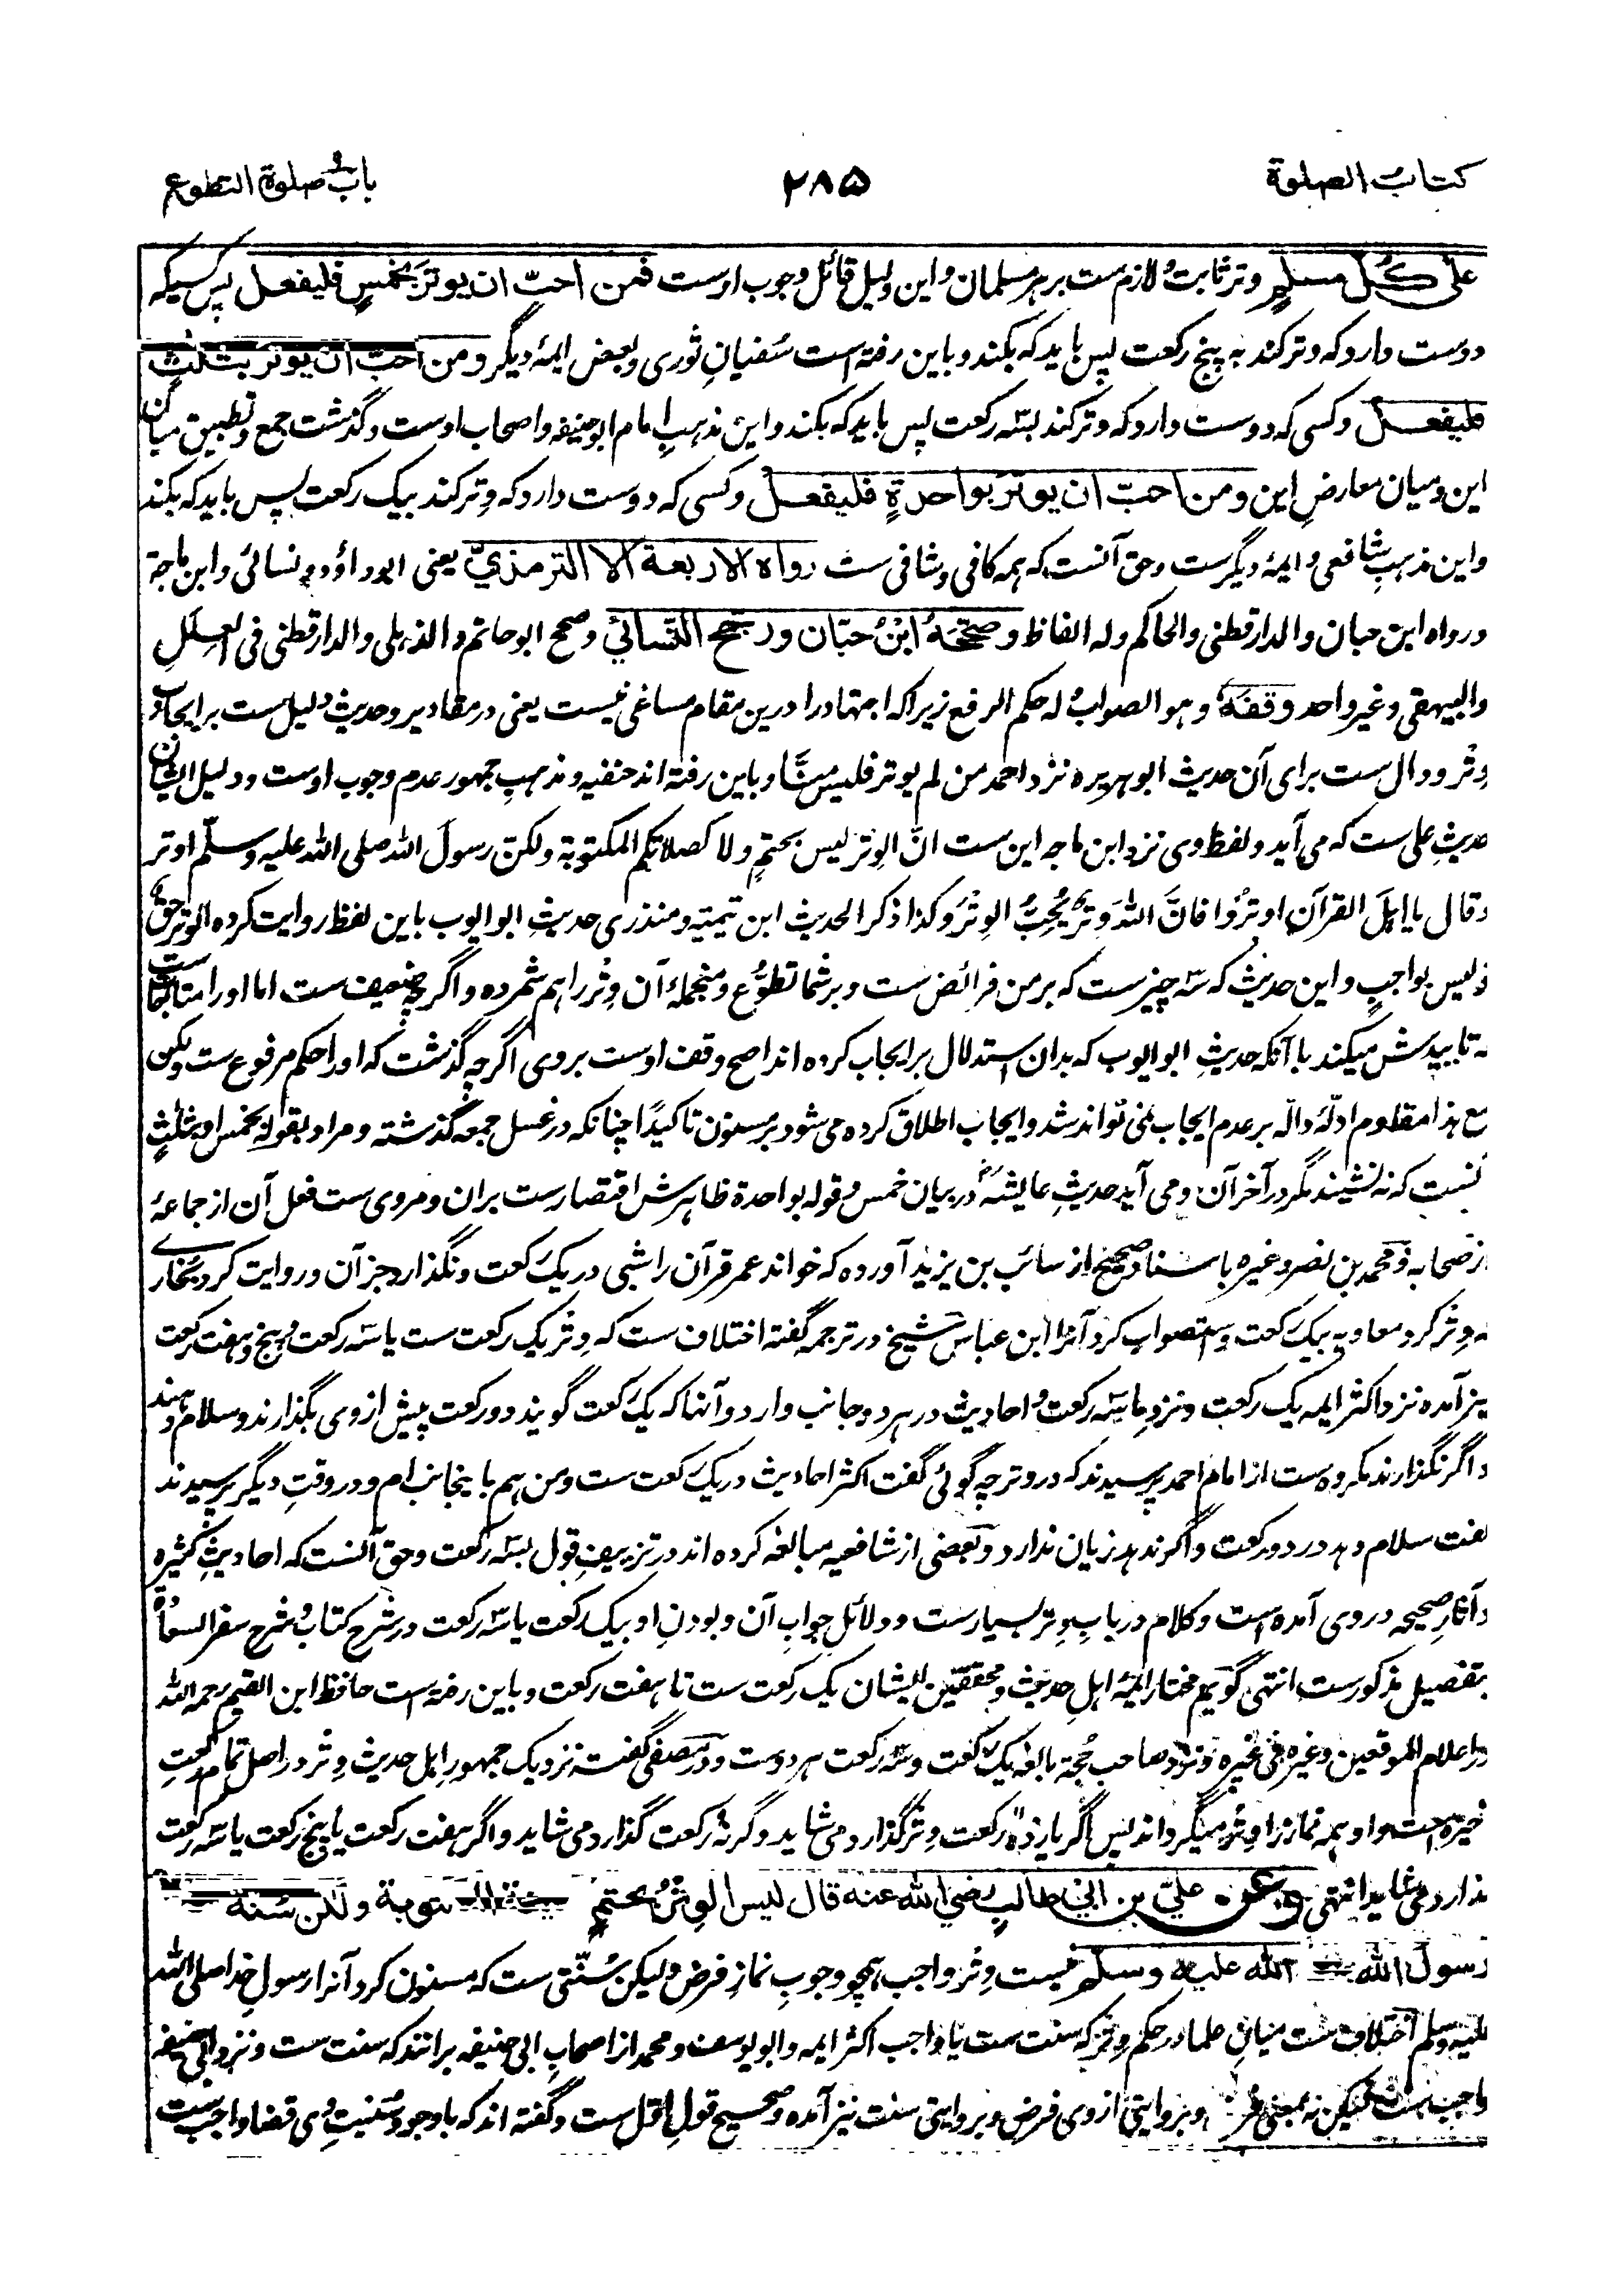 کتاب الصلوة
۲۸۵
باب صلوة التطوع
علی کل مسلم وتر ثابت و لازم ست بر هر مسلمان و این دلیل قائل وجوب اوست فمن احبّ ان یوتر بخمسٍ فلیفعل پس کسیکه
دوست دارد که وتر کند به پنج رکعت پس باید که بکند و باین رفته است سفیانِ ثوری و بعض ایمهٔ دیگر و من احبّ ان یوتر بثلثٍ
فلیفعل و کسی که دوست دارد که وتر کند بسّه رکعت پس باید که بکند و این مذهبِ امام ابو حنیفه و اصحاب اوست و گذشت جمع و تطبیق میان
این و میان معارضِ این و من احبّ ان یوتر بواحدةٍ فلیفعل و کسی که دوست دارد که وتر کند بیک رکعت پس باید که بکند
و این مذهبِ شافعی و ایمهٔ دیگرست و حق آنست که همه کافی و شافی ست رواه الاربعة الا الترمذیّ یعنی ابو داؤد و نسائی و ابن ماجة
و رواه ابن حبان و الدارقطنی و الحاکم و له الفاظ و صححهُ ابنُ حبّان و رجح النّسائیُ و صحح ابو حاتم و الذهلی و الدارقطنی فی العللِ
و البیهقی و غیر واحد وقفَهُ و هو الصوابُ له حکم الرفع زیراکه اجتهاد را درین مقام مساغی نیست یعنی در مقادیر و حدیث دلیل ست بر ایجابِ
وتر و دال ست برای آن حدیث ابو هریره نزد احمد من لم یوتر فلیس منّا و باین رفته اند حنفیه و مذهبِ جمهور عدم وجوب اوست و دلیل ایشان
حدیثِ علی ست که می آید و لفظ وی نزد ابن ماجه این ست انّ الوتر لیس بحتمٍ و لا کصلاتکم المکتوبة و لکنّ رسولَ الله صلی الله علیه وسلّم اوتر
و قال یا اهلَ القرآن اوتروا فانَّ اللهَ وترٌ یُحبُّ الوترَ و کذا ذکر الحدیث ابن تیمیه و منذری حدیثِ ابو ایوب باین لفظ روایت کرده الوتر حقٌ
و لیس بواجبٍ و این حدیث که سّه چیزست که بر من فرائض ست و بر شما تطوُّع و منجملهٔ آن وتر را هم شمرده و اگرچه ضعیف ست اما او را متابعات ست
که تاییدش میکند با آنکه حدیثِ ابو ایوب که بدان استدلال بر ایجاب کرده اند اصح وقف اوست بر وی اگرچه گذشت که او را حکم مرفوع ست ولکن
مع هذا مقاوم ادلّهٔ دالّه بر عدم ایجاب نمی تواند شد و ایجاب اطلاق کرده می شود بر مسنون تاکیدًا چنانکه در غسل جمعه گذشته و مراد بقوله بخمسٍ او بثلثٍ
آنست که نه نشیند مگر در آخر آن و می آید حدیثِ عایشه در بیان خمس و قوله بواحدة ظاهرش اقتصارست بران و مروی ست فعل آن از جماعهٔ
از صحابه و محمد بن نصر و غیره باسناد صحیح از سائب بن یزید آورده که خواند عمر قرآن را شبی در یک رکعت و نگذارد جز آن و روایت کرد بخاری
که وتر کرد معاویه بیک رکعت و استصواب کرد آنرا ابن عباس شیخ در ترجمه گفته اختلاف ست که وتر یک رکعت ست یا سّه رکعت و پنج و هفت رکعت
نیز آمده نزد اکثر ایمه یک رکعت و نزد ما سّه رکعت و احادیث در هر دو جانب وارد و آنها که یک رکعت گویند دو رکعت پیش از وی بگذارند و سلام دهند
و اگر نگذارند مکروه ست از امام احمد پرسیدند که در وتر چه گوئی گفت اکثر احادیث در یک رکعت ست و من هم باینجانب ام و در وقتِ دیگر پرسیدند
گفت سلام دهد در دو رکعت و اگر ندهد زیان ندارد و بعضی از شافعیه مبالغه کرده اند در تزییفِ قول بسّه رکعت و حق آنست که احادیثِ کثیره
و آثارِ صحیحه در وی آمده است و کلام در بابِ وتر بسیارست و دلائلِ جوابِ آن و بودنِ او بیک رکعت یا سّه رکعت در شرح کتاب و شرح سفر السعادة
بتفصیل مذکورست انتهی گویم مختار ایمهٔ اهلِ حدیث و محققین ایشان یک رکعت ست تا هفت رکعت و باین رفته است حافظ ابن القیم رحمه الله
در اعلام الموقعین و غیره فی غیره و نزد صاحب حجة بالغه یک رکعت و سّه رکعت هر دوست و در مصفی گفته نزدیک جمهور اهل حدیث وتر در اصل تمام رکعتِ
اخیره است و او همه نماز را وتر میگرداند پس اگر یازده رکعت وتر گذارد می شاید و گر نه رکعت گذارد می شاید و اگر هفت رکعت یا پنج رکعت یا سّه رکعت
گذارد می شاید انتهی و عن علیّ بن ابی طالبٍ رضی الله عنه قال لیس الوترُ بحتمٍ المکتوبة و لکن سُنة
رسول الله الله علیه وسلم نیست وتر واجب همچو وجوبِ نمازِ فرض ولیکن سُنّتی ست که مسنون کرد آنرا رسولِ خدا صلی الله
علیه وسلم اختلاف ست میانِ علما در حکم وتر که سنت ست یا واجب اکثر ایمه و ابو یوسف و محمد از اصحابِ ابی حنیفه برانند که سنت ست و نزد ابی حنیفه
واجب ست لیکن نه بمعنی فرض و بروایتی از وی فرض و بروایتی سنت نیز آمده و صحیح قولِ اول ست و گفته اند که باوجود سُنیتِ وی قضا واجب ست